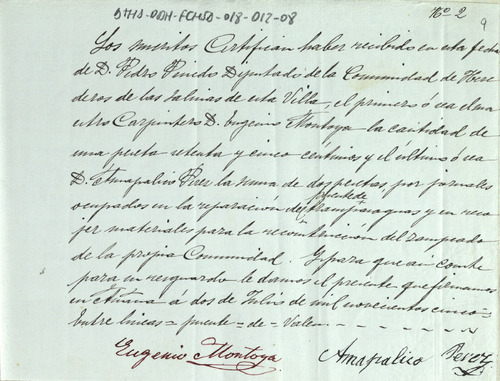 ATHS-DDH-FCHSD-018-012-08
Nº 2
9
Los suscritos Certifican haber recibido en esta fecha
de D. Pedro Pinedo Diputado de la Comunidad de Here
deros de las Salinas de esta Villa, el primero ó sea el ma
estro Carpintero D. Eugenio Montoya la cantidad de
una peseta setenta y cinco céntimos y el ultimo ó sea
D. Amapalico Perez la suma de dos pesetas, por jornales
puente de
ocupados en la reparación del trampasaguas y en reco
jer materiales para la reconstrucción del rampeado
de la propia Comunidad. Y para que asi conste
para su resguardo le damos el presente que firmamos
en Añana á dos de Julio de mil novecientos cinco=
Entre lineas = puente = de = Valen
Eugenio Montoya. Amapalico Perez